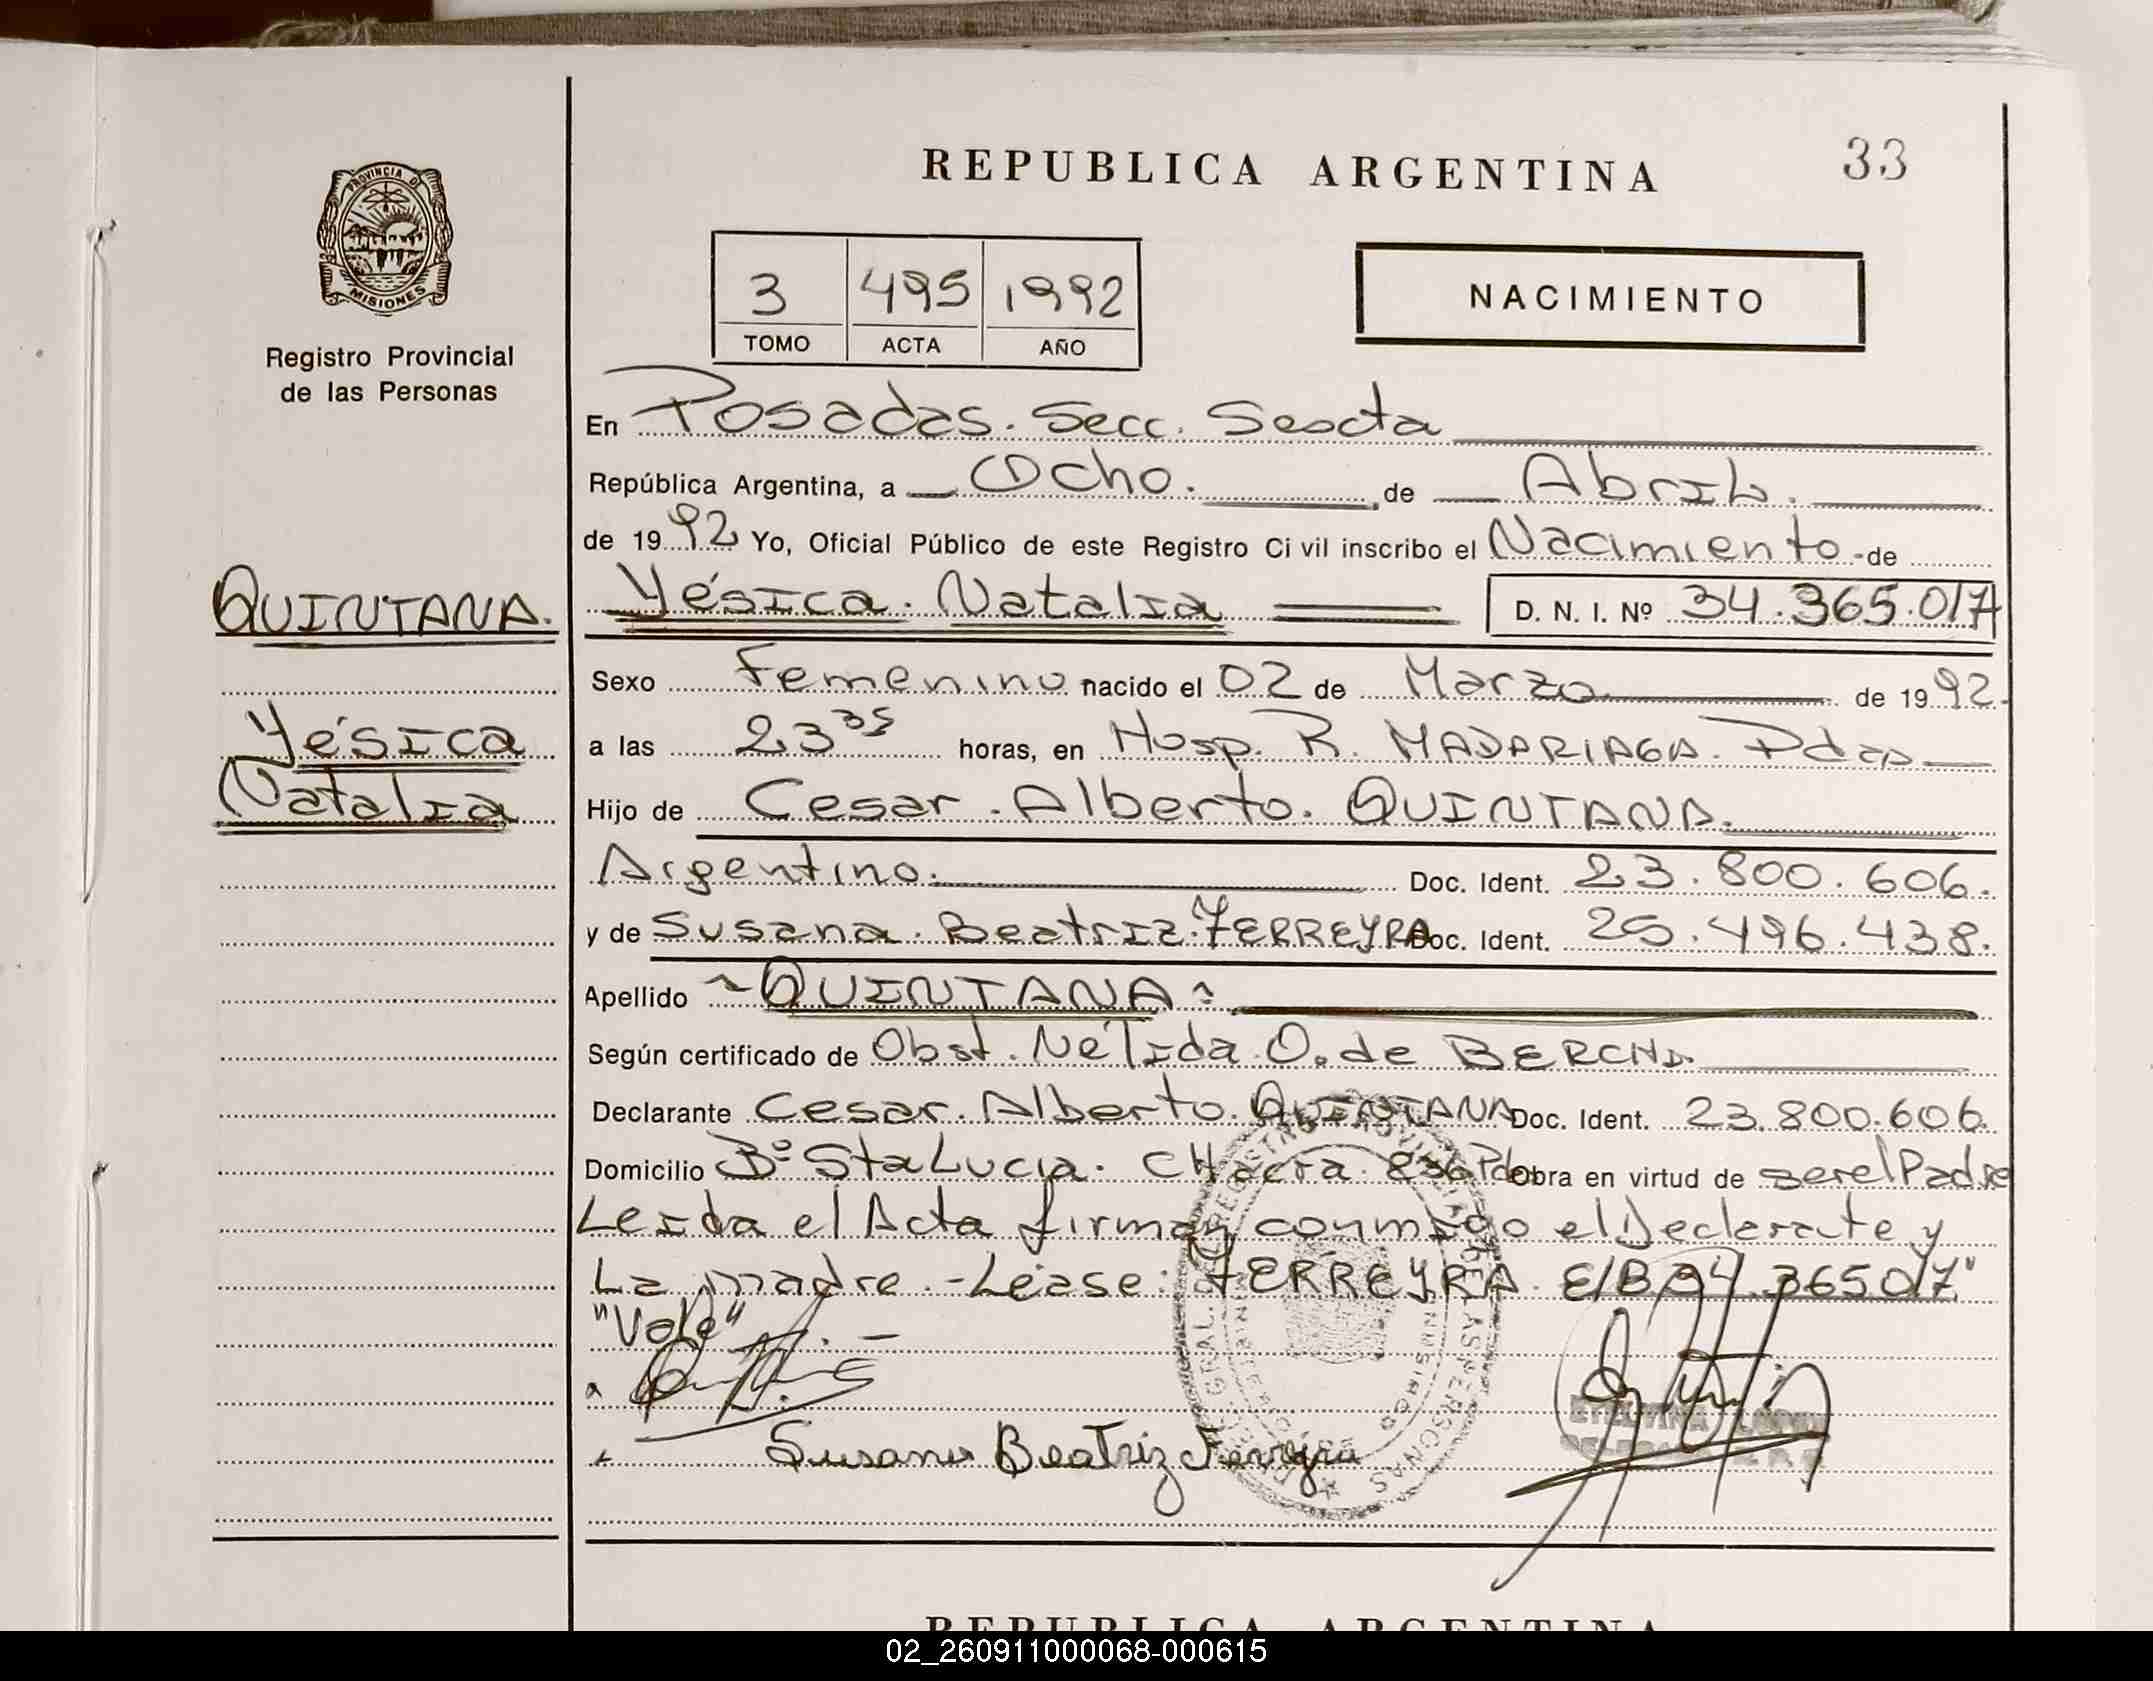 REPUBLICA ARGENTINA
33
PROVINCIA DE
MISIONES
Registro Provincial
de las Personas
3 495 1992
TOMO ACTA AÑO
NACIMIENTO
En Posadas. Secc. Sexta
República Argentina, a Ocho. de Abril.
de 1992 Yo, Oficial Público de este Registro Ci vil inscribo el Nacimiento - de
QUINTANA.
Yésica. Natalia D. N. I. Nº 34.365.017
Sexo Femenino nacido el 02 de Marzo de 1992.
Yésica
Natalia
a las 23 35 horas, en Hosp. R. MADARIAGA. Pdas
Hijo de Cesar. Alberto. QUINTANA.
Argentino. Doc. Ident. 23.800.606.
y de Susana. Beatriz. FERREYRA Doc. Ident. 25.496.438.
Apellido ~ QUINTANA ~
Según certificado de Obst. Nélida O. de
Declarante Cesar. Alberto. QUINTANA Doc. Ident. 23.800.606.
Domicilio Bº Sta Lucia. CHacra Obra en virtud de ser el Padre
Leida el Acta firman conmigo el Declarante y
La madre. - Léase: FERREYRA. E/B 34.365017"
"Vale". -
Susana Beatriz Ferreyra
REPUBLICA ARGENTINA
02_260911000068-000615